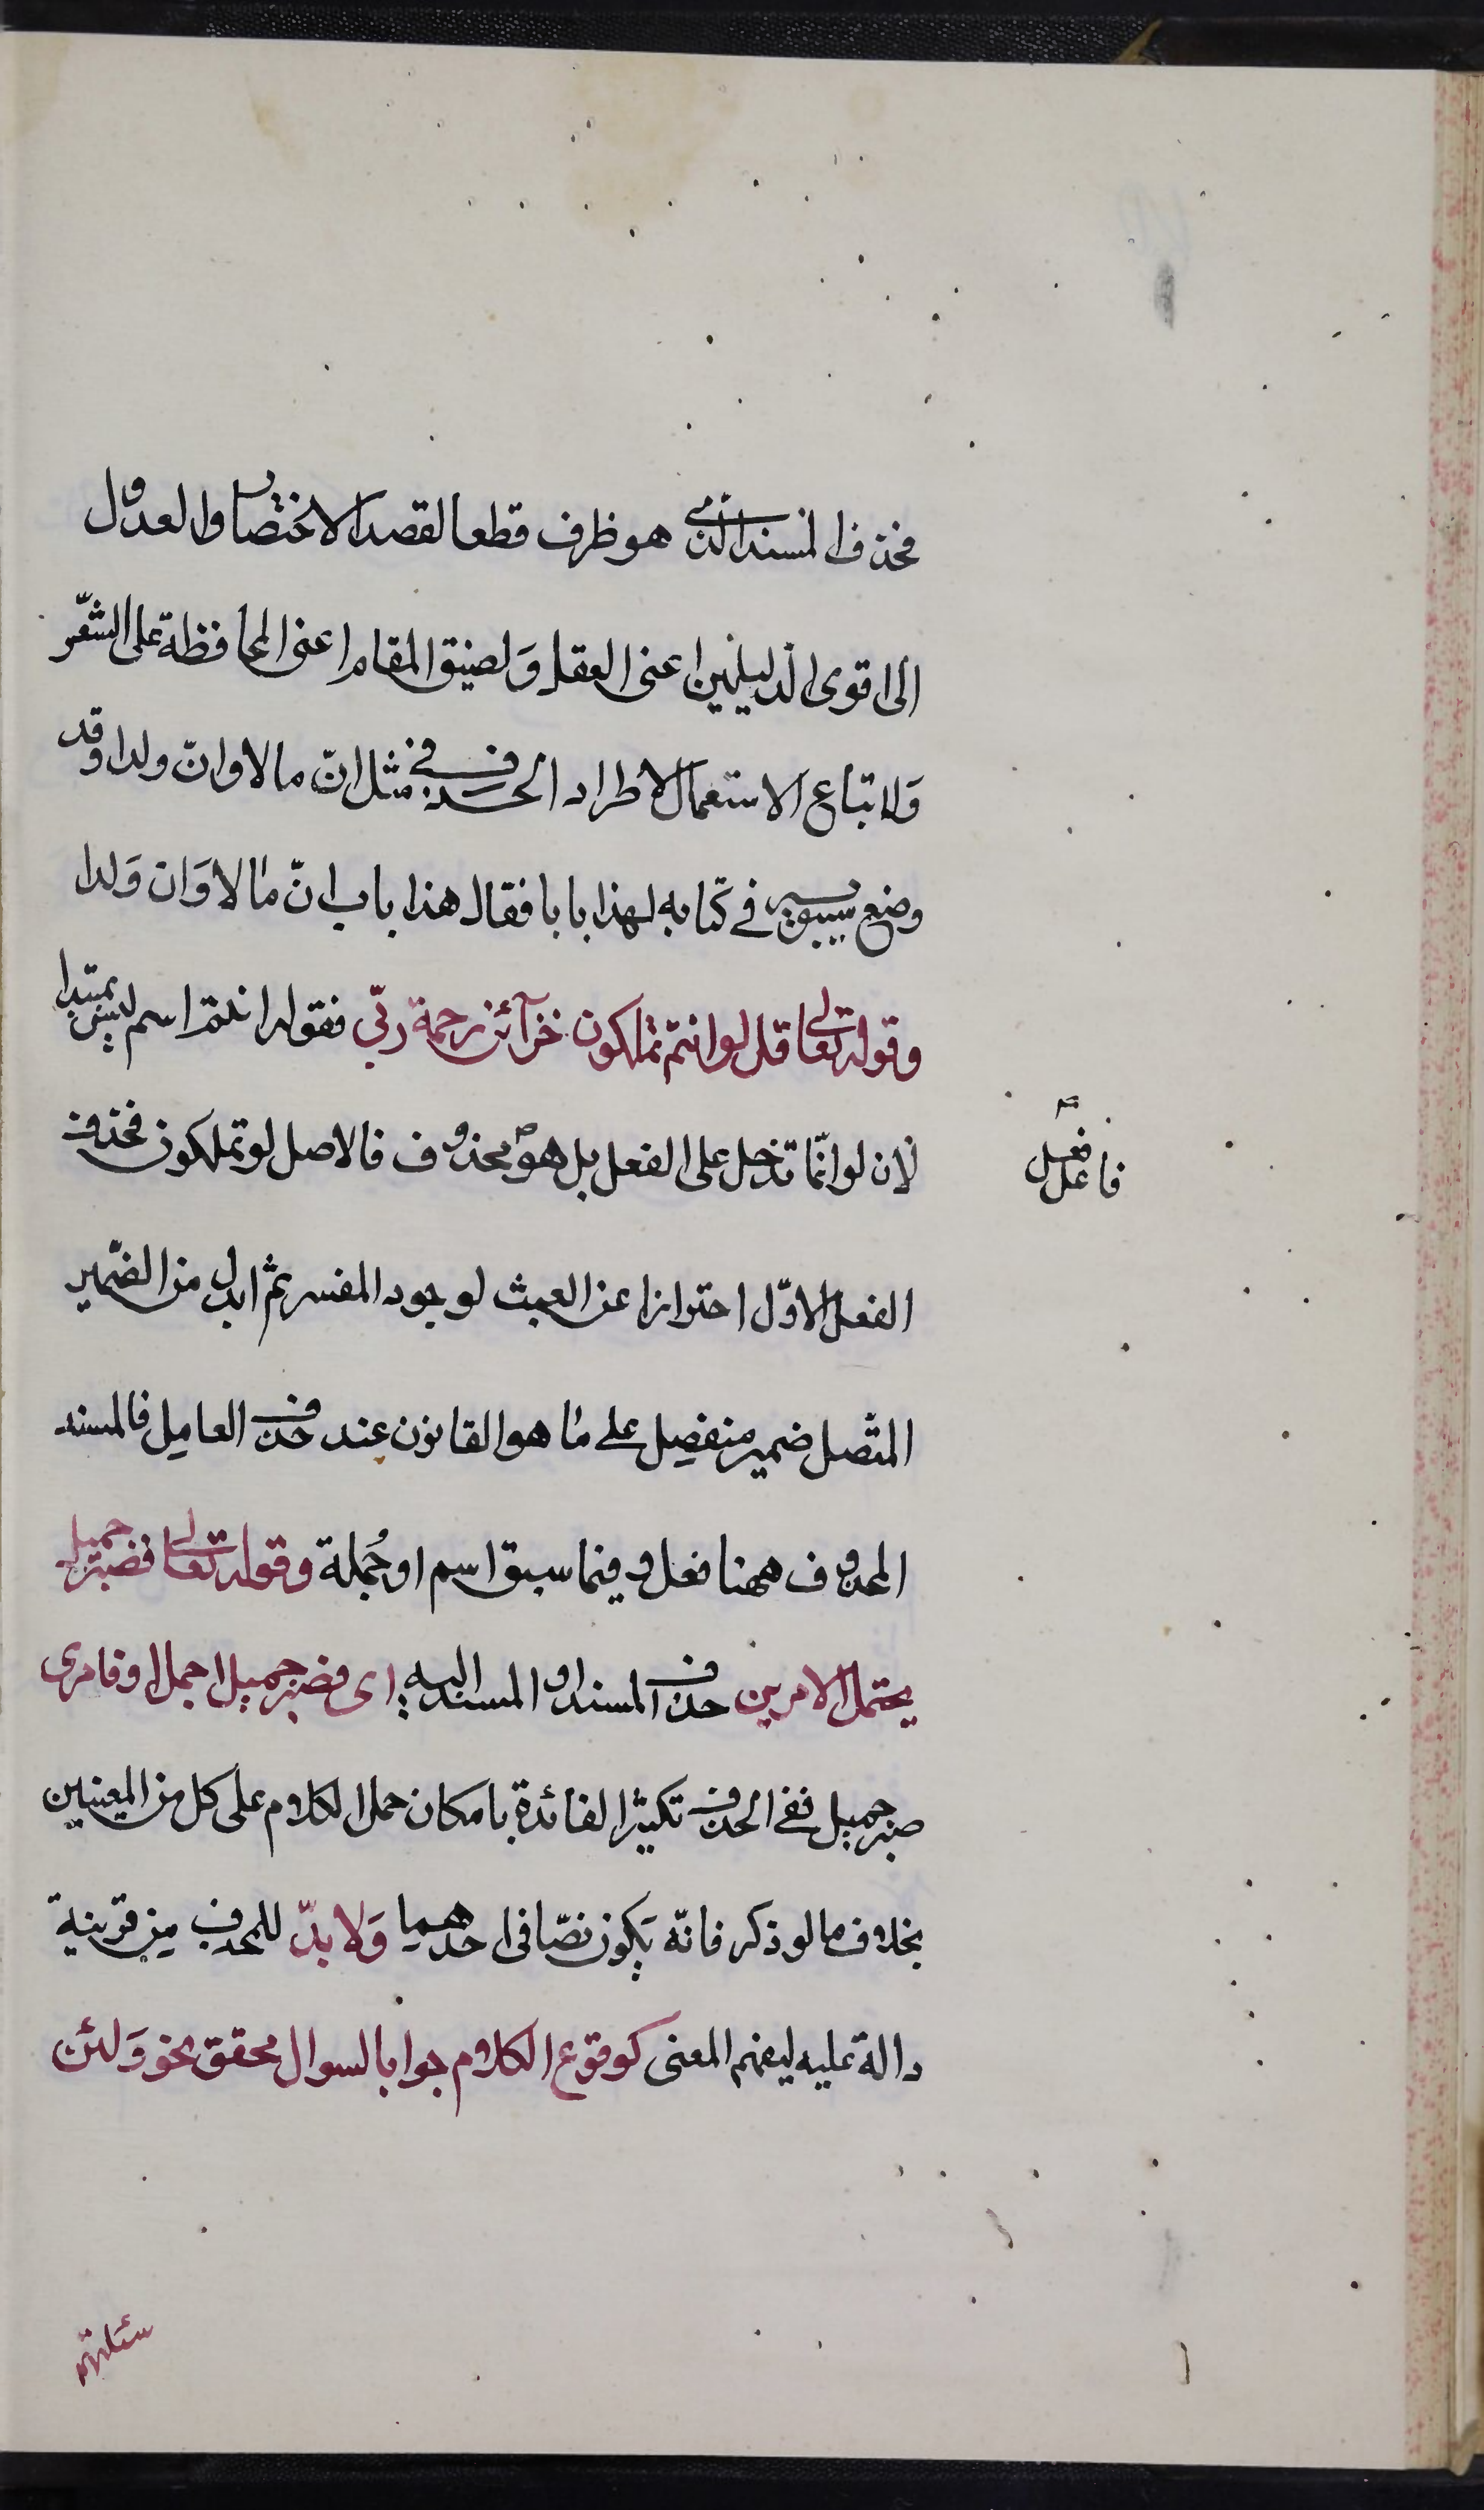 فحذف المسند الذى هو ظرف قطعا لقصد الاختصار والعدول
الى اقوى الدليلين اعنى العقل وَلضيق المقام اعنى المحافظة على الشّعر
وَلاتباع الاستعمال لاطراد الحذف فى مثل انّ مالا وانّ ولدا وقد
وضع سيبويه فى كتابه لهذا بابا فقال هذا باب انّ مالا وَان وَلدا
وقوله تعالى قل لو انتم تملكون خزآئن رحمة ربّى فقوله انتم اسم ليس بمبتدا
لان لو انّما تدخل على الفعل بل هو محذوف فالاصل لو تملكون فحذف
فاعل فعل
الفعل الاوّل احترازا عن العبث لوجود المفسر ثم ابدل من الضّمير
المتّصل ضمير منفصِل على ما هو القانون عند حذف العامِل فالمسند
المحذوف ههنا فعل وفيما سبق اسم او جُملة وقوله تعالى فصبر جميل
يحتمل الامرين حذف المسند او المسند اليه اى فصبر جميل اجمل او فامرى
صبر جميل ففى الحذف تكثير الفائدة بامكان حمل الكلام على كل من المعنيين
بخلاف ما لو ذكر فانّه يَكون نصّا فى احدهما وَلا بدّ للحذف مِن قرينة
دالة عليه ليفهم المعنى كوقوع الكلام جوابا لسوال محقق نحو وَلئن
سئلتهم